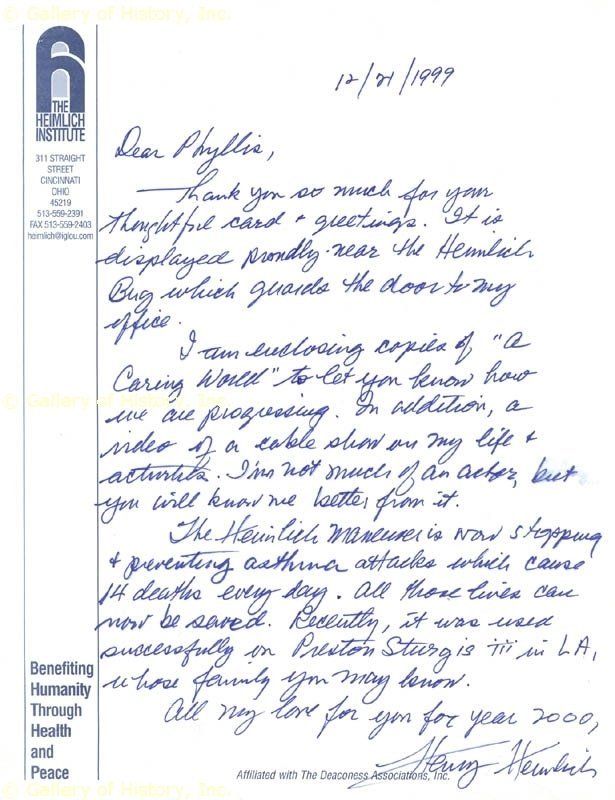 © Gallery of History, Inc.
THE
HEIMLICH
INSTITUTE
311 STRAIGHT
STREET
CINCINNATI
OHIO
45219
513-559-2391
FAX 513-559-2403
heimlich@iglou.com
12/21/1999
Dear Phyllis,
Thank you so much for your
thoughtful card + greetings. It is
displayed proudly near the Heimlich
Bug which guards the door to my
office.
I am enclosing copies of "A
Caring World" to let you know how
© Gallery of History, Inc.
we are progressing. In addition, a
video of a cable show on my life +
activities. I'm not much of an actor, but
you will know me better from it.
The Heimlich Maneuver is now stopping
+ preventing asthma attacks which cause
14 deaths every day. All those lives can
now be saved. Recently, it was used
successfully on Preston Sturgis iii in LA,
whose family you may know.
All my love for you for year 2000,
Henry Heimlich
Benefiting
Humanity
Through
Health
and
Peace
Affiliated with The Deaconess Associations, Inc.
© Gallery of History, Inc.